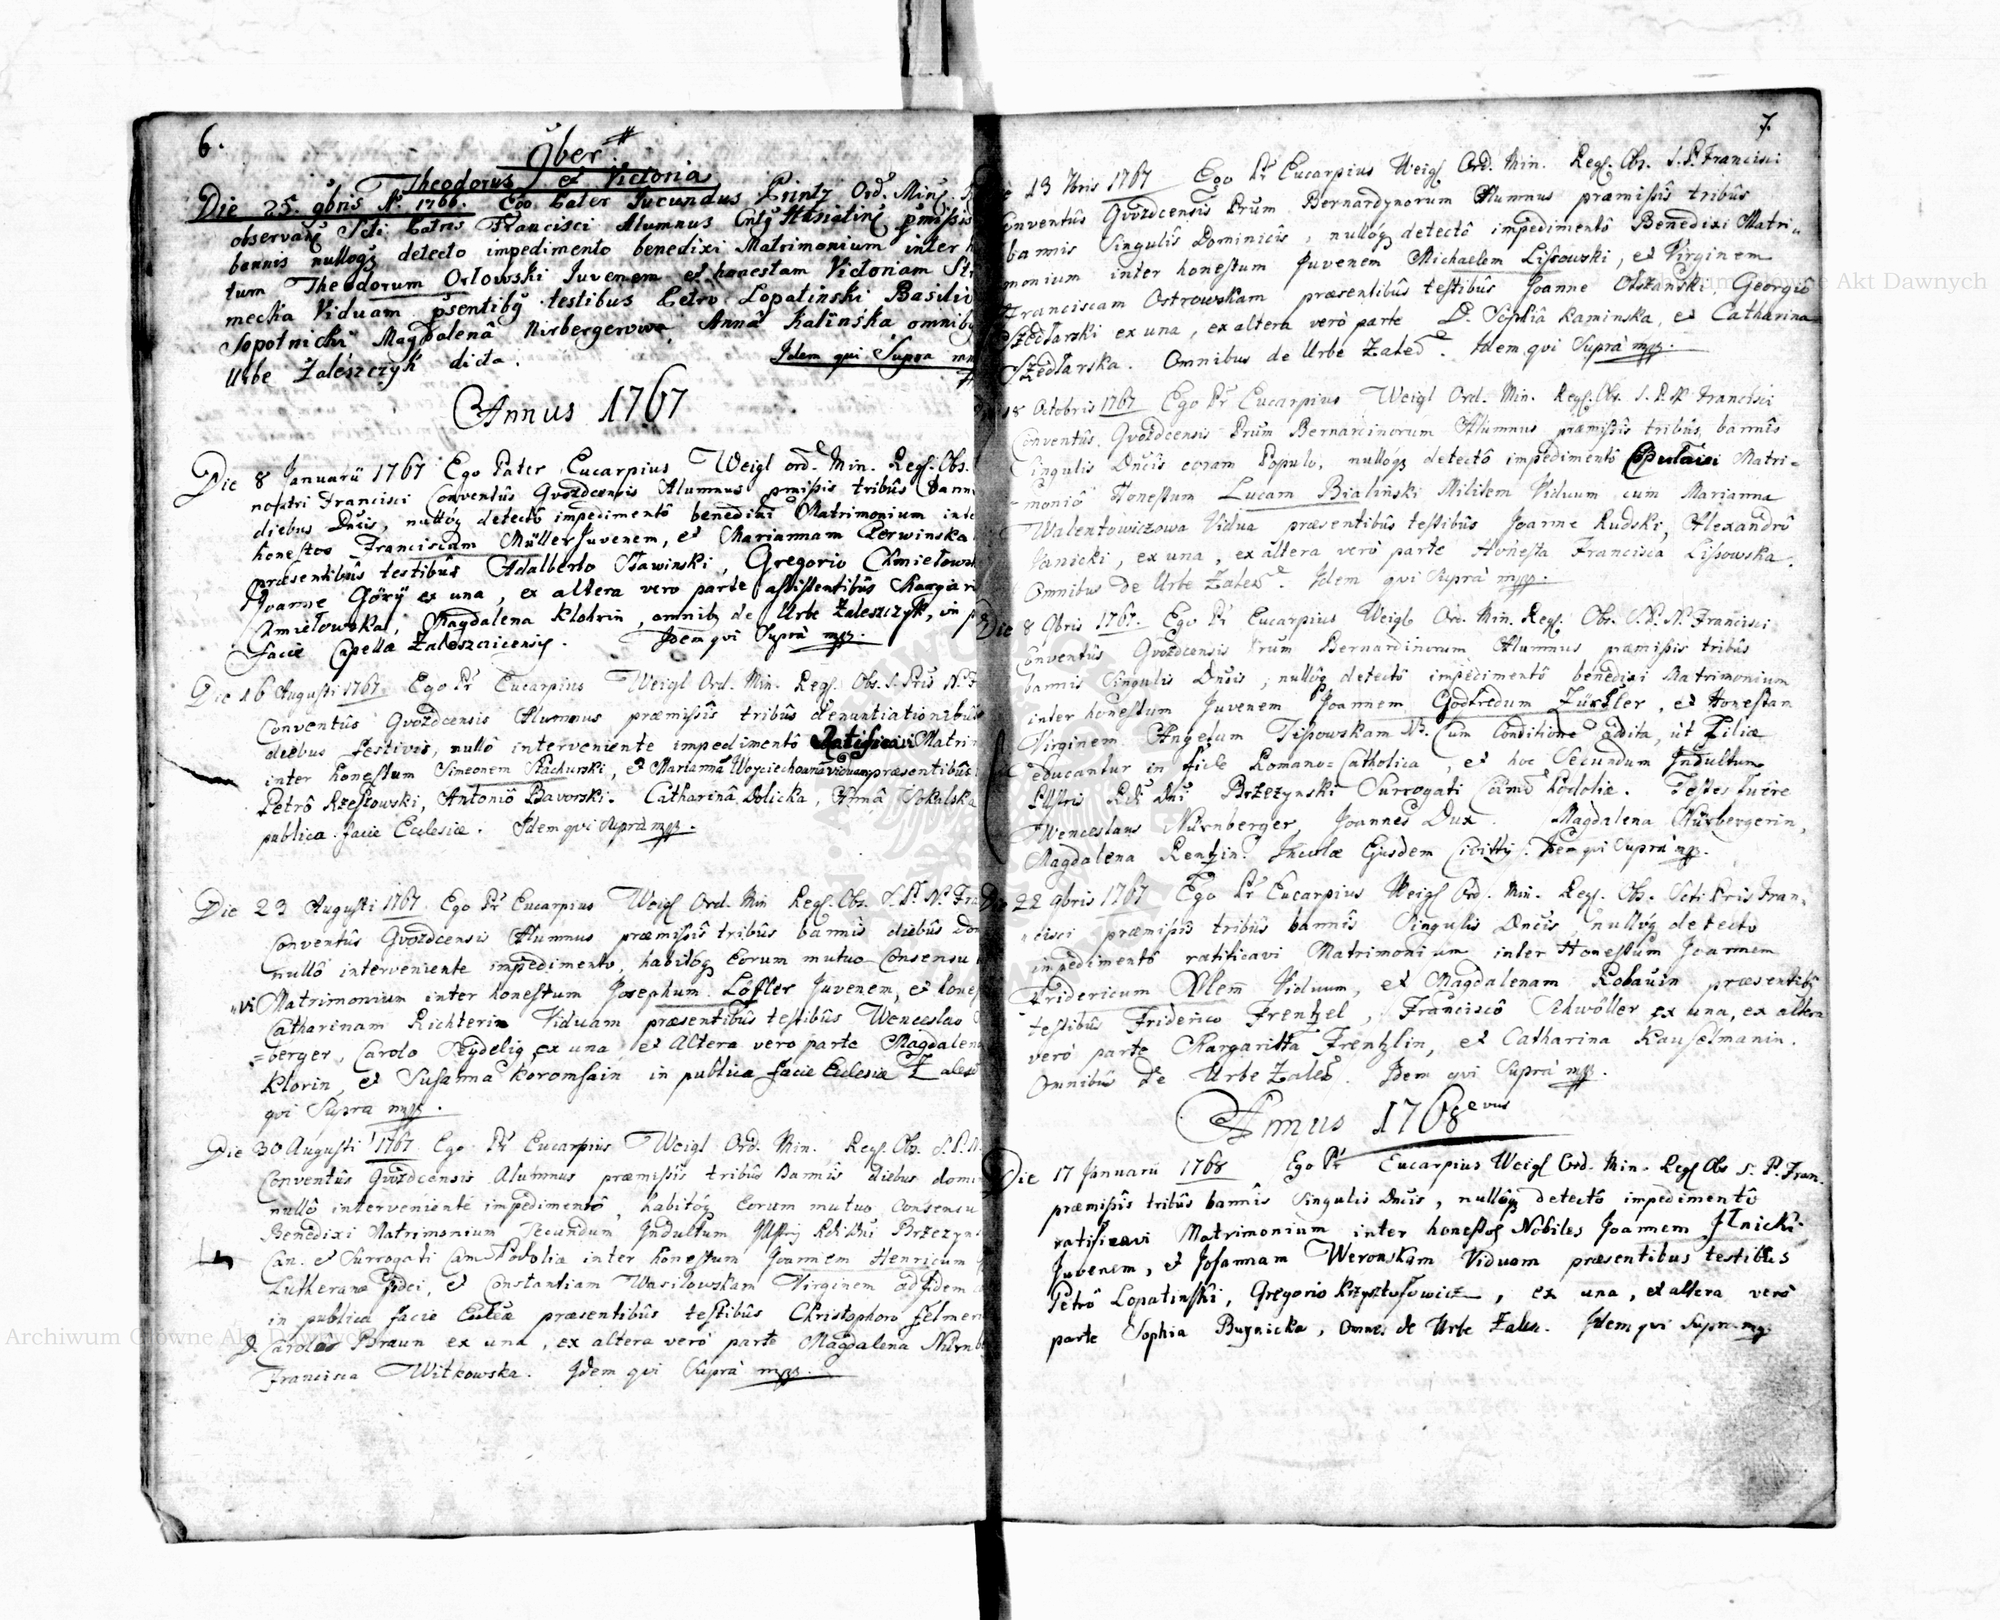 6.
9ber
Theodorus et Victoria
Die 25. 9bris A. 1766. Ego Pater Jucundus Printz Ord. Min.
observan Sti Patris Francisci Alumnus
bannis nulloq detecto impedimento benedixi Matrimonium inter
tum Theodorum Orlowski Juvenem et honestam Victoriam
Viduam psentibq testibus Petro Lopatinski Basilio
Sopotnicki Magdalenâ Nirbergerowa, Annâ Kalinska omnibq
Urbe Zaleszczyk dicta.
Idem qui Supra
Annus 1767
Die 8 Januarii 1767 Ego Pater Eucarpius Weigl ord. Min. Reg. Obs.
nostri Francisci Conventûs Gvozdcensis Alumnus pmissis tribûs bann
diebus Dncis, nulloq detectô impedimentô benedixi Matrimonium inte
honestos Franciscum Müller Juvenem, et Mariannam Perwinska
præsentibûs testibûs Adalberto Slawinski, Gregorio Chmielowsk
Joanne Göry ex una, ex altera vero parte assistentibûs Margari
Chmielowska, Magdalena Klohrin, omnibq de Urbe Zaleszczyk, in p
facie Capellæ Zaleszcicensis. Idem qui Suprà mpp.
Die 16 Augusti 1767 Ego Pr Eucarpius Weigl Ord. Min. Reg. Obs. S. Pris N. F
Conventûs Gvozdcensis Alumnus præmissis tribûs denuntiationibûs
diebus festivis, nullô interveniente impedimentô Ratificavi Matrim
inter honestum Simeonem Stachurski, et Marianna viduam præsentibûs
Petrô Rzeszowski, Antoniô Bavorski. Catharinâ Dolicka, Annâ Sokalska
publica facie Ecclesiæ. Idem qui Suprà mpp.
Die 23 Augusti 1767 Ego Pr Eucarpius Weigl Ord. Min Reg. Obs. S. P. N. Fra
Conventûs Gvozdcensis Alumnus præmissis tribûs bannis diebûs Dom
nullô interveniente impedimento, habitoq Eorum mutuo Consensu
vi Matrimonium inter honestum Josephum Löffler Juvenem, et hones
Catharinam Richterin Viduam præsentibûs testibûs Wenceslao
berger, Carolo Seydelig ex una et Altera vero parte Magdalena
Klorin, et Susanna Koromsain in publica facie Ecclesiæ Zales
qui Supra mpp.
Die 30 Augusti 1767 Ego Pr Eucarpius Weigl Ord. Min. Reg. Obs. S. P. N.
Conventûs Gvozdcensis Alumnus præmissis tribûs Bannis diebus domi
nullô interveniente impedimentô, habitoq Eorum mutuo Consensu
Benedixi Matrimonium Secundum Indultum Illstris Rdi Dni Brzezyns
Can. et Surrogati Cam Podolia inter honestum Joannem Henricum
Lutheranæ fidei, et Constantiam Wasilowskam Virginem
in publica facie Ecclæ præsentibûs testibûs Christophoro Felmer
Carolo Braun ex una, ex altera verò parte Magdalena Nürnb
Francisca Witkowska. Idem qui Suprà mpp.
7.
13 7bris 1767 Ego Pr Eucarpius Weigl Ord. Min. Reg. Obs. S. P. Francisci
Conventûs Gvozdcensis Prum Bernardynorum Alumnus præmissis tribûs
bannis Singulis Dominicis, nulloq detectô impedimentô Benedixi Matri
monium inter honestum Juvenem Michaelem Lissowski, et Virginem
Franciscam Ostrowskam præsentibûs testibûs Joanne Olszanski, Georgiô
Szedlarski ex una, ex altera verò parte D. Sophiâ Kaminska, et Catharina
Szedlarska. Omnibus de Urbe Zales. Idem qui Suprà mpp.
18 Octobris 1767 Ego Pr Eucarpius Weigl Ord. Min. Reg. Obs. S. P. N Francisci
Conventûs Gvozdcensis Prum Bernardinorum Alumnus præmissis tribûs bannis
Singulis Dncis coram Populo, nulloq detectô impedimentô Copulavi Matri=
moniô Honestum Lucam Bialinski Militem Viduum cum Marianna
Walentowiczowa Vidua præsentibûs testibûs Joanne Rudski, Alexandrô
Janicki, ex una, ex altera verò parte Honesta Francisca Lissowska.
Omnibus de Urbe Zales. Idem qui Suprà mpp.
Die 8 9bris 1767. Ego Pr Eucarpius Weigl Ord. Min. Reg. Obs. S. P. N. Francisci
Conventûs Gvozdcensis Prum Bernardinorum Alumnus præmissis tribûs
bannis Singulis Dncis, nulloq detectô impedimentô benedixi Matrimonium
inter honestum Juvenem Joannem Godfredum Zürkler, et Honestam
Virginem Angelum Tissowskam NB. Cum Conditione addita, ut Filiæ
educantur in fide Romano=Catholica, et hoc Secundum Indultum
Illstris Rdi Dni Brzezynski Surrogati Cam Podoliæ. Testes Fuêre
Wenceslaus Nürnberger Joannes Dux. Magdalena Nürbergerin,
Magdalena Rentzin. Incolæ Ejusdem Civittis. Idem qui Suprà mpp.
Die 22 9bris 1767 Ego Pr Eucarpius Weigl Ord. Min. Reg. Obs. Scti Pris Fran=
cisci præmissis tribûs bannis Singulis Dncis, nulloq detecto
impedimentô ratificavi Matrimonium inter Honestum Joannem
Fridericum Ulem Viduum, et Magdalenam Robauin præsentibûs
testibûs Friderico Frentzel, Franciscô Schwöller ex una, ex altera
verò parte Margaritta Frentzlin, et Catharina Kauselmanin.
Omnibûs de Urbe Zales. Idem qui Suprà mpp.
Annus 1768
Die 17 Januarii 1768 Ego Pr Eucarpius Weigl Ord. Min. Reg Obs S. P. Fran.
præmissis tribûs bannis Singulis Dncis, nulloq detectô impedimentô
ratificavi Matrimonium inter honestos Nobiles Joannem Ilnicki
Juvenem, et Josannam Weronskam Viduam præsentibus testibus
Petrô Lopatinski, Gregorio Krzysztofowicz, ex una, et altera verò
parte Sophia Buynicka, Omnes de Urbe Zales. Idem qui Supra mpp.
Archiwum Główne Akt Dawnych
Archiwum Główne Akt Dawnych